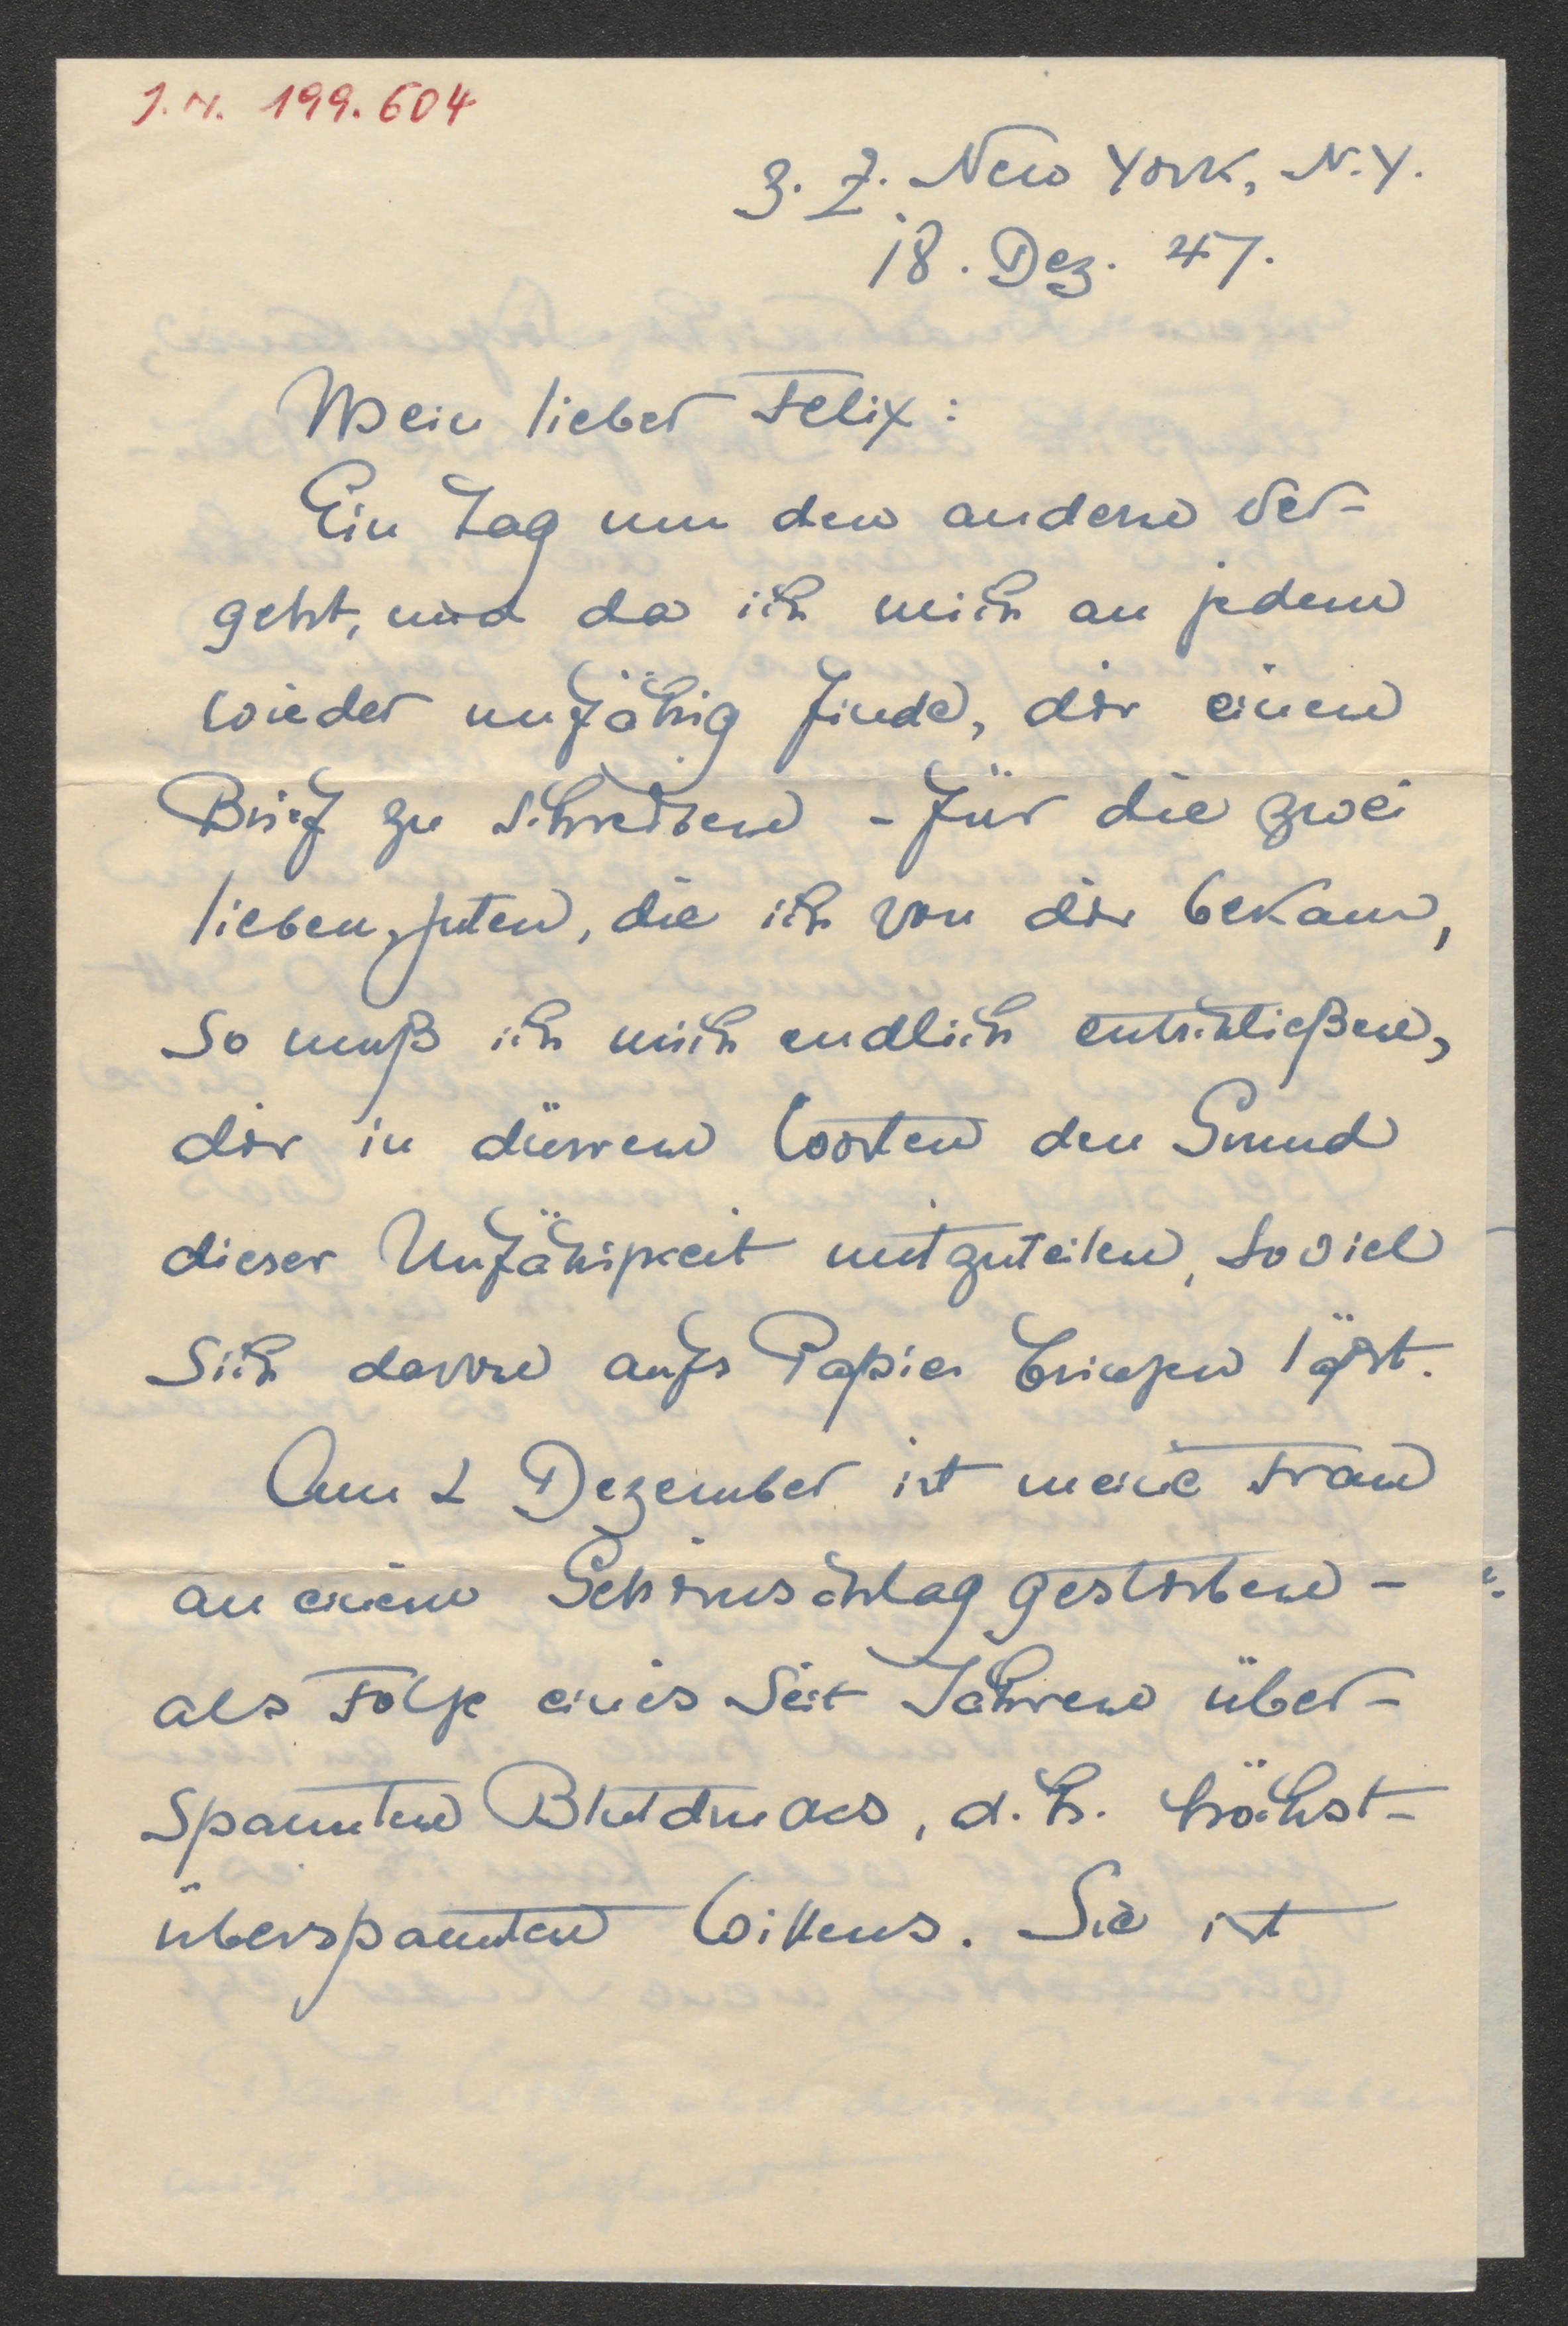 J.N. 199.604
z. Z. New York, N.Y.
18. Dez. 47.
Mein lieber Felix:
Ein Tag um den andern ver-
geht, und da ich mich an jedem
wieder unfähig finde, dir einen
Brief zu schreiben - für die zwei
lieben, guten, die ich von dir bekam,
so muß ich mich endlich entschließen,
dir in dürren Worten den Grund
dieser Unfähigkeit mitzuteilen, soviel
sich davon aufs Papier bringen läßt.
Am 2 Dezember ist meine Frau
an einem Gehirnschlag gestorben -
als Folge eines seit Jahren über-
spannten Blutdrucks, d. h. höchst-
überspannten Willens. Sie ist